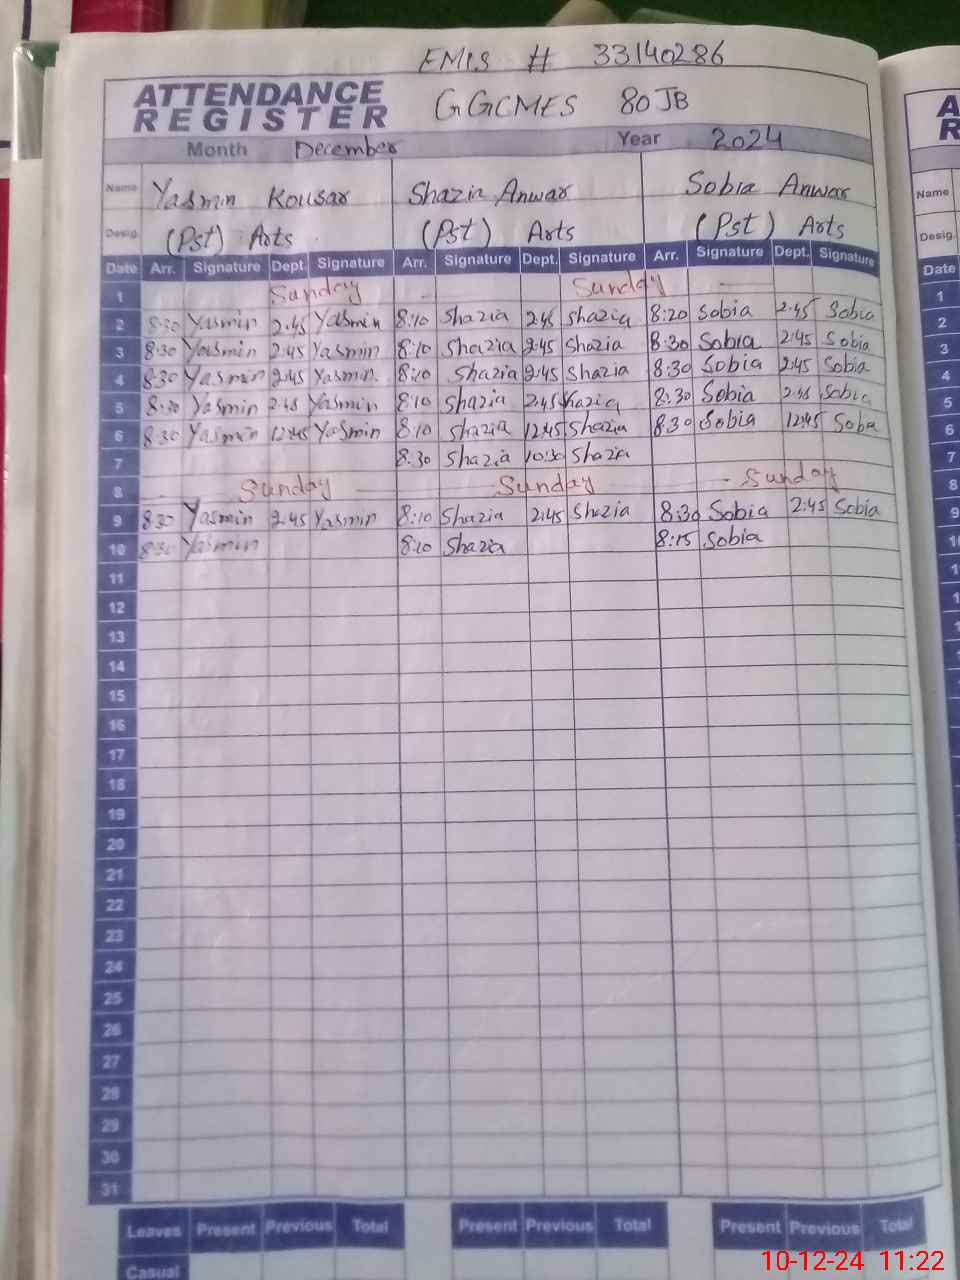 EMIS # 33140286
ATTENDANCE REGISTER GGCMES 80 JB
Month December Year 2024
Name Yasmin Kousar Shazia Anwar Sobia Anwar
Desig. (Pst) Arts (Pst) Arts (Pst) Arts
Date Arr. Signature Dept. Signature Arr. Signature Dept. Signature Arr. Signature Dept. Signature
1 Sunday Sunday
2 8:30 Yasmin 2:45 Yasmin 8:10 Shazia 2:45 Shazia 8:20 Sobia 2:45 Sobia
3 8:30 Yasmin 2:45 Yasmin 8:10 Shazia 2:45 Shazia 8:30 Sobia 2:45 Sobia
4 8:30 Yasmin 2:45 Yasmin. 8:10 Shazia 2:45 Shazia 8:30 Sobia 2:45 Sobia
5 8:30 Yasmin 2:45 Yasmin 8:10 Shazia 2:45 Shazia 8:30 Sobia 2:45 Sobia
6 8:30 Yasmin 12:45 Yasmin 8:10 Shazia 12:45 Shazia 8:30 Sobia 12:45 Soba
7 8:30 Shazia 10:30 Shazia
8 Sunday Sunday Sunday
9 8:30 Yasmin 2:45 Yasmin 8:10 Shazia 2:45 Shazia 8:30 Sobia 2:45 Sobia
10 8:30 Yasmin 8:10 Shazia 8:15 Sobia
11
12
13
14
15
16
17
18
19
20
21
22
23
24
25
26
27
28
29
30
31
Leaves Present Previous Total Present Previous Total Present Previous Total
Casual
10-12-24 11:22
A
R
Name
Desig.
Date
1
2
3
4
5
6
7
8
9